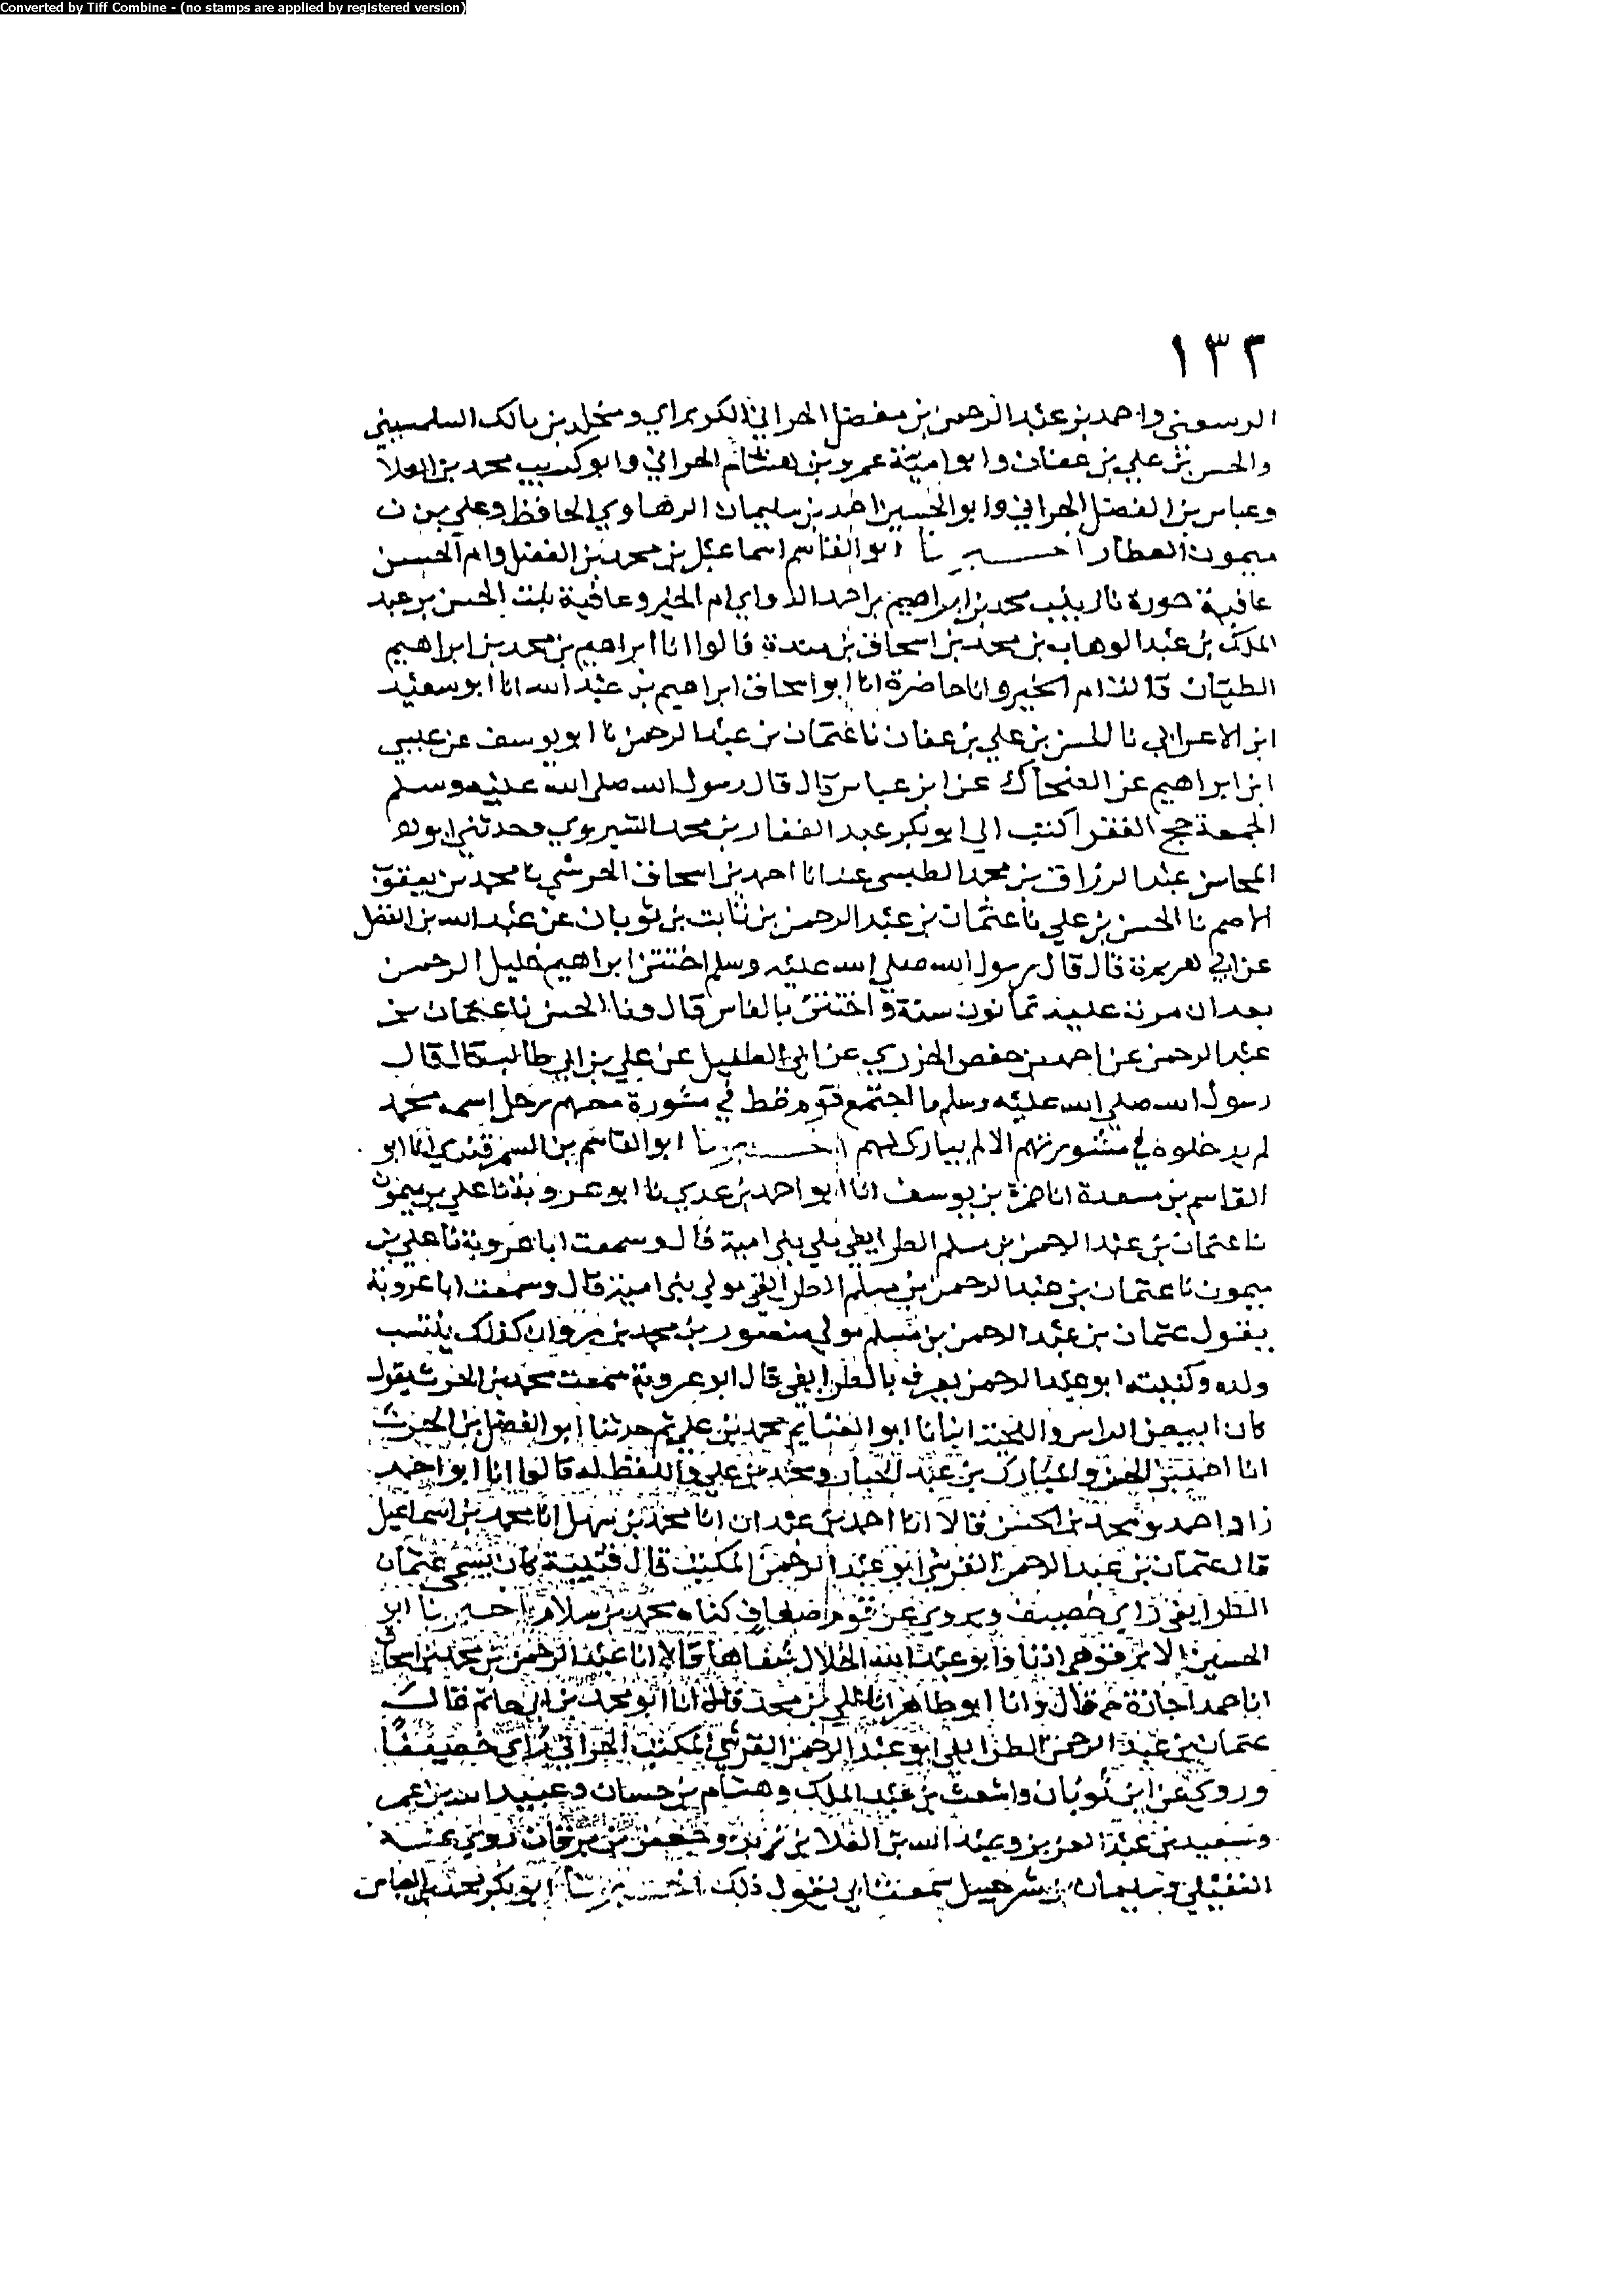 Converted by Tiff Combine - (no stamps are applied by registered version)
١٣٢
الرسعنى واحمد بن عبد الرحمن بن مفضل الحراني الكريراي ومخلد بن مالك السلمسينى
والحسن بن علي بن عفان وابو امية عمرو بن هشام الحراني وابو كريب محمد بن العلا
وعباس بن الفضل الحراني وابو الحسين احمد بن سليمان الرهاوي الحافظ وعلي بن
ميمون العطار اخبرنا ابو القاسم اسماعيل بن محمد بن الفضل وام الحسن
عافية حورة نازينب محمد بن ابراهيم بن احمد الدواي ام الخير وعافية بنت الحسن بن عبد
الملك بن عبد الوهاب بن محمد بن اسحاق بن مندة قالوا انا ابراهيم بن محمد بن ابراهيم
الطيان قالت ام الخير وانا حاضرة انا ابو اسحاق ابراهيم بن عبد الله انا ابو سعيد
ابن الاعرابي نا الحسن بن علي بن عفان نا عثمان بن عبد الرحمن نا ابو يوسف عن عيسي
ابن ابراهيم عن الضحاك عن ابن عباس قال قال رسول الله صلى الله عليه وسلم
الجمعة حج الفقرا كتب الي ابو بكر عبد الغفار بن محمد الشيروي وحدثني ابو
المحاسن عبد الرزاق بن محمد الطبسى عنه انا احمد بن اسحاق الحرشي نا محمد بن يعقوب
الاصم نا الحسن بن علي نا عثمان بن عبد الرحمن بن ثابت بن ثوبان عن عبد الله بن الفضل
عن ابي هريرة قال قال رسول الله صلي الله عليه وسلم اختتن ابراهيم خليل الرحمن
بعد ان مرت عليه ثمانون سنة واختتن بالفاس قال ونا الحسن نا عثمان بن
عبد الرحمن عن احمد بن حفص الجزري عن ابي الطفيل عن علي بن ابي طالب قال قال
رسول الله صلي الله عليه وسلم ما اجتمع قوم قط في مشورة معهم رجل اسمه محمد
لم يدخلوه في مشورتهم الا لم يبارك لهم اخبرنا ابو القاسم بن السمرقندي انا ابو
القاسم بن مسعدة انا حمزة بن يوسف انا ابو احمد بن عدي نا ابو عروبة نا علي بن ميمون
نا عثمان بن عبد الرحمن بن مسلم الطرايفي بلي بنى امية قال وسمعت ابا عروبة نا علي بن
ميمون نا عثمان بن عبد الرحمن بن مسلم الطرايفي مولي بنى امية قال وسمعت ابا عروبة
يقول عثمان بن عبد الرحمن بن مسلم مولي منصور بن محمد بن مروان كذلك ينتسب
ولده وكنيته ابو عبد الرحمن يعرف بالطرايفي قال ابو عروبة سمعت محمد بن الحرث يقول
كان ابيض الراس واللحية انبانا ابو الغنايم محمد بن علي ثم حدثنا ابو الفضل بن الحرث
انا احمد بن الحسن والمبارك بن عبد الجبار ومحمد بن علي واللفظ له قالوا انا ابو احمد
زاد احمد ومحمد بن الحسن قالا انا احمد بن عبدان انا محمد بن سهل انا محمد بن اسماعيل
قال عثمان بن عبد الرحمن القرشي ابو عبد الرحمن المكتب قال قتيبة كان يسمى عثمان
الطرايفي راي خصيف ويروي عن قوم ضعاف كناه محمد بن سلام اخبرنا ابو
الحسين الابرقوهي اذنا وابو عبد الله الخلال شفاها قالا انا عبد الرحمن بن محمد بن اسحاق
انا حمد اجازة ح قال وانا ابو طاهر انا علي بن محمد قالا انا ابو محمد بن ابي حاتم قال
عثمان بن عبد الرحمن الطرايفي ابو عبد الرحمن القرشي المكتب الحراني راي خصيفا
وروي عن ابن ثوبان واشعث بن عبد الملك وهشام بن حسان وعبيد الله بن عمر
وسعيد بن عبد العزيز وعبد الله بن العلا بن زبر وجعفر بن برقان روي عنه
النفيلي وسليمان بن شرحبيل سمعت ابي يقول ذلك اخبرنا ابو بكر محمد بن العباس